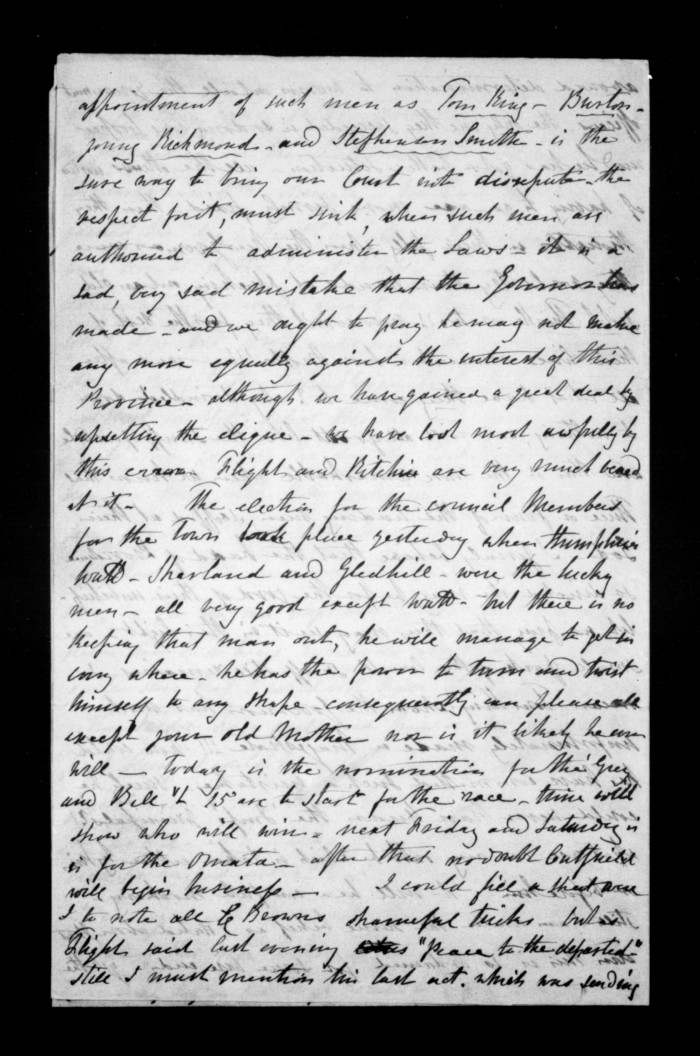 appointment of such men as Tom King - Burton -
young Richmond - and Stephenson Smith - is the
sure way to bring our Court into disrepute - the
respect for it, must sink, when such men are
authorised to administer the Laws - it is a
sad, very sad mistake that the Governor has
made - and we ought to pray he may not make
any more equally against the interest of this
Province - although we have gained a great deal by
upsetting the clique - we have lost most awfully by
this error. Flight and Ritchie are very much
at it - The election for the council Members
for the town took place yesterday when Humphries
Watt - Sharland and Gledhill - were the lucky
men - all very good except Watt - but there is no
keeping that man out, he will manage to get in
any where - he has the power to turn and twist
himself to any shape - consequently can please all
except your old Mother nor is it likely he ever
will - today is the nomination for the Grey
and Bell "t 15 are to start for the race - time will
show who will win - next Friday and Saturday is
is for the Omata - after that no doubt Cutfield
will begin business - I could fill a sheet were
I to note all C Browns shameful tricks - but as
Flight said last evening "Peace to the departed"
still I must mention his last act. which was sending